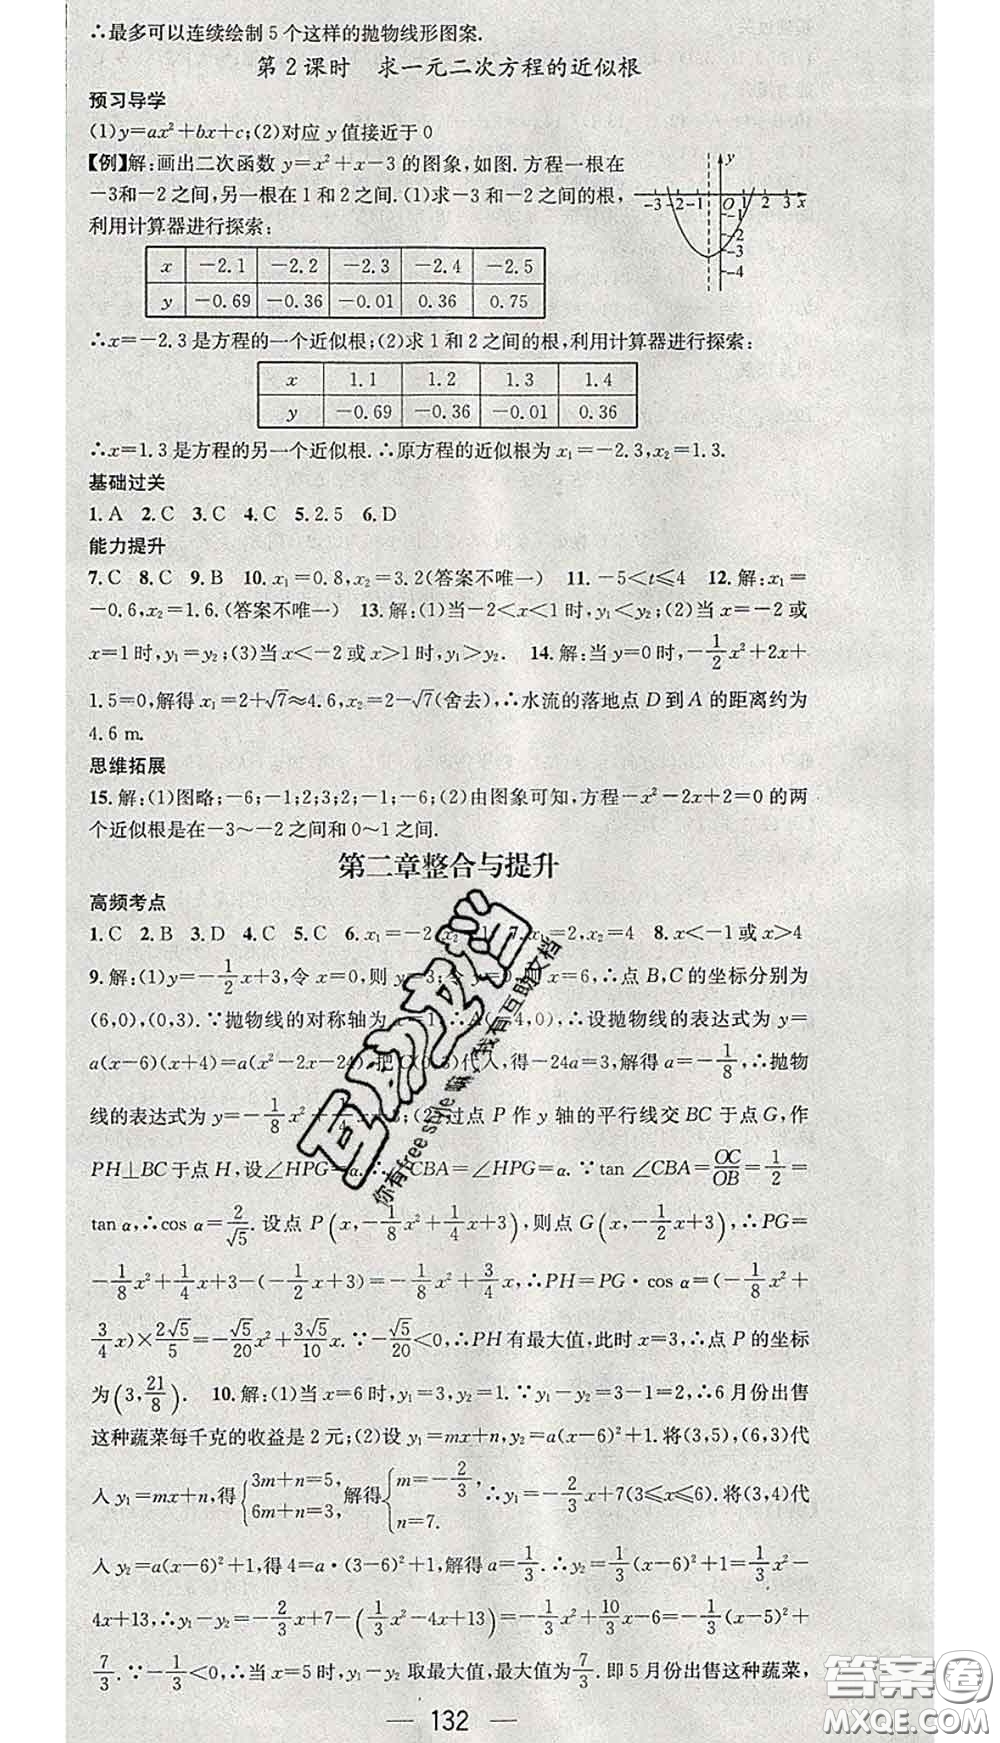 ∴最多可以连续绘制5个这样的抛物线形图案.
第2课时 求一元二次方程的近似根
预习导学
(1)y=ax²+bx+c;(2)对应y值接近于0
【例】解:画出二次函数y=x²+x-3的图象,如图.方程一根在
-3和-2之间,另一根在1和2之间.(1)求-3和-2之间的根,
利用计算器进行探索:
y
-3 -2 -1 O 1 2 3 x
-1
-2
-3
-4
x -2.1 -2.2 -2.3 -2.4 -2.5
y -0.69 -0.36 -0.01 0.36 0.75
∴x=-2.3是方程的一个近似根;(2)求1和2之间的根,利用计算器进行探索:
x 1.1 1.2 1.3 1.4
y -0.69 -0.36 -0.01 0.36
∴x=1.3是方程的另一个近似根.∴原方程的近似根为x₁=-2.3,x₂=1.3.
基础过关
1.A 2.C 3.C 4.C 5.2.5 6.D
能力提升
7.C 8.C 9.B 10.x₁=0.8,x₂=3.2(答案不唯一) 11.-5<t≤4 12.解:x₁=
-0.6,x₂=1.6.(答案不唯一) 13.解:(1)当-2<x<1时,y₁<y₂;(2)当x=-2或
x=1时,y₁=y₂;(3)当x<-2或x>1时,y₁>y₂. 14.解:当y=0时,-1/2x²+2x+
1.5=0,解得x₁=2+√7≈4.6,x₂=2-√7(舍去),∴水流的落地点D到A的距离约为
4.6 m.
思维拓展
15.解:(1)图略;-6;-1;2;3;2;-1;-6;(2)由图象可知,方程-x²-2x+2=0的两
个近似根是在-3～-2之间和0～1之间.
第二章整合与提升
高频考点
1.C 2.B 3.D 4.C 5.C 6.x₁=-2,x₂ 1 7.x₁=2,x₂=4 8.x<-1或x>4
9.解:(1)y=-1/2x+3,令x=0,则y=3;令y=0, x=6,∴点B,C的坐标分别为
(6,0),(0,3).∵抛物线的对称轴为x=1,∴A(-4,0),∴设抛物线的表达式为y=
a(x-6)(x+4)=a(x²-2x-24),把C(0,3)代入,得-24a=3,解得a=-1/8,∴抛物
线的表达式为y=-1/8x²+1/4x+3;(2)过点P作y轴的平行线交BC于点G,作
PH⊥BC于点H,设∠HPG=α.∴∠CBA=∠HPG=α.∵tan∠CBA=OC/OB=1/2=
tan α,∴cos α=2/√5.设点P(x,-1/8x²+1/4x+3),则点G(x,-1/2x+3),∴PG=
-1/8x²+1/4x+3-(-1/2x+3)=-1/8x²+3/4x,∴PH=PG·cos α=(-1/8x²+
3/4x)×2√5/5=-√5/20x²+3√5/10x.∵-√5/20<0,∴PH有最大值,此时x=3,∴点P的坐标
为(3,21/8). 10.解:(1)当x=6时,y₁=3,y₂=1.∵y₁-y₂=3-1=2,∴6月份出售
这种蔬菜每千克的收益是2元;(2)设y₁=mx+n,y₂=a(x-6)²+1.将(3,5),(6,3)代
入y₁=mx+n,得{3m+n=5,6m+n=3,解得{m=-2/3,n=7.∴y₁=-2/3x+7(3≤x≤6).将(3,4)代
入y₂=a(x-6)²+1,得4=a·(3-6)²+1,解得a=1/3.∴y₂=1/3(x-6)²+1=1/3x²-
4x+13,∴y₁-y₂=-2/3x+7-(1/3x²-4x+13)=-1/3x²+10/3x-6=-1/3(x-5)²+
7/3.∵-1/3<0,∴当x=5时,y₁-y₂取最大值,最大值为7/3.即5月份出售这种蔬菜,
132
互助文档
你有free style嘛,我有互助文档
答案圈
MXQE.COM